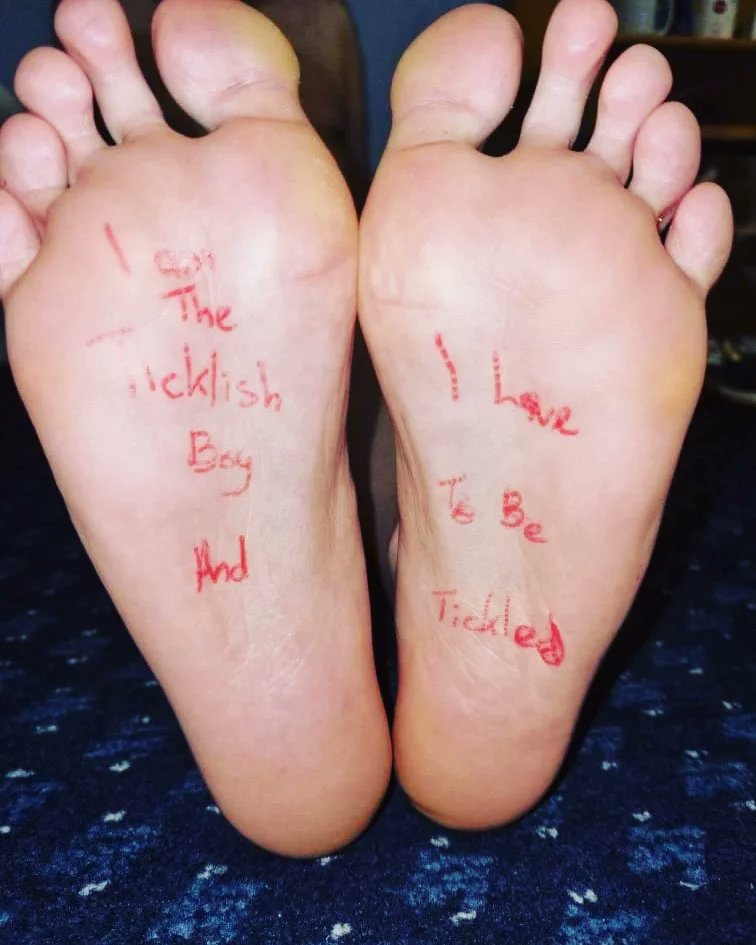 I am
The
Ticklish
Boy
And
I Love
To Be
Tickled